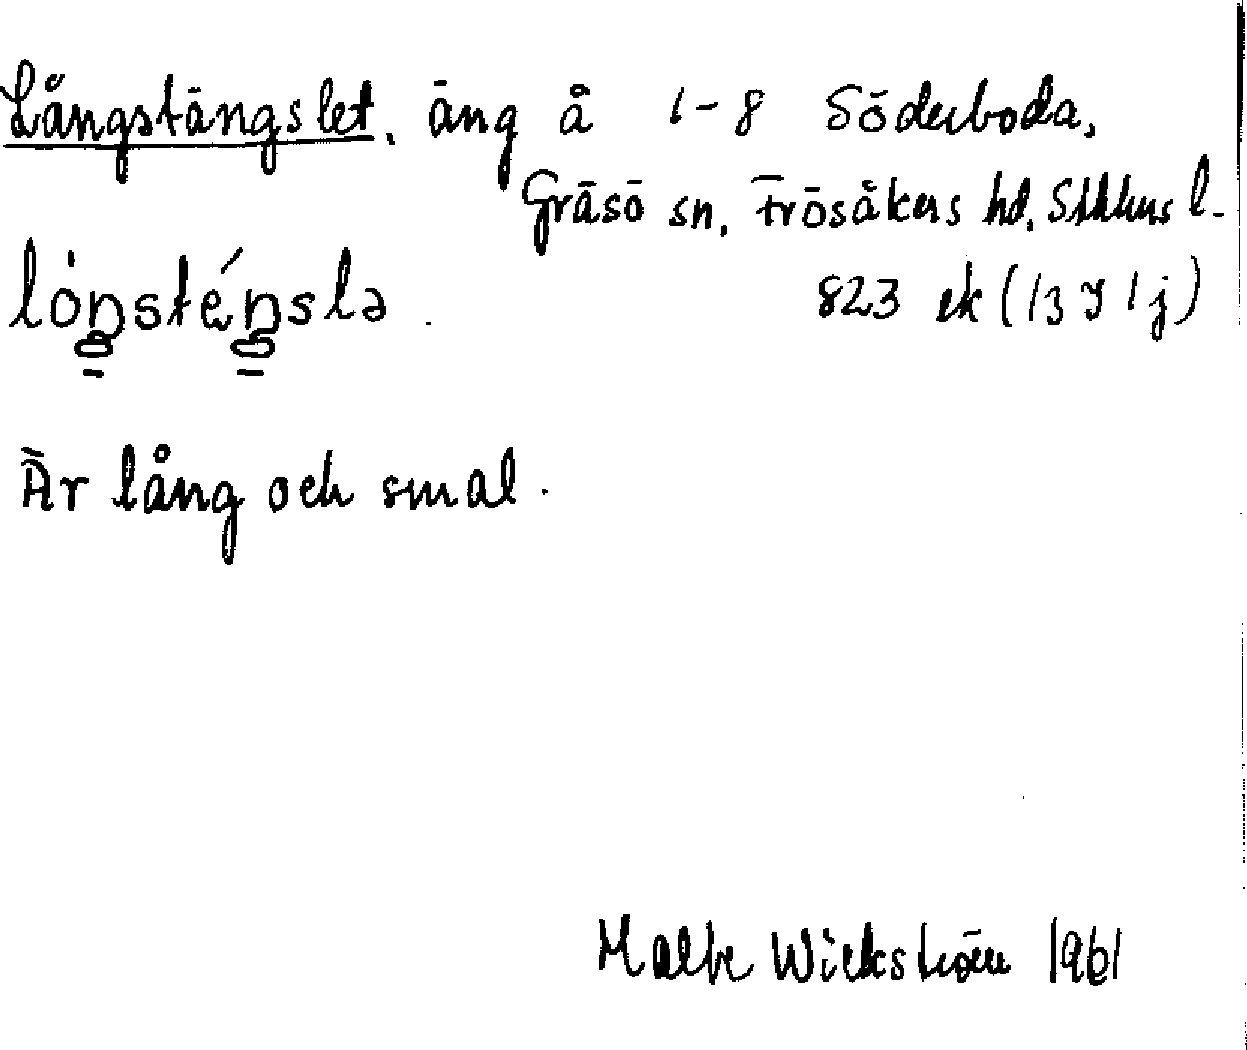 Långstängslet, äng å 1-8 Söderboda,
Gräsö sn, Frösåkers hd, Sthlms l.
lóŋstéŋslə.
823 ek (13 I 1 j)
Är lång och smal.
Wickström 1961